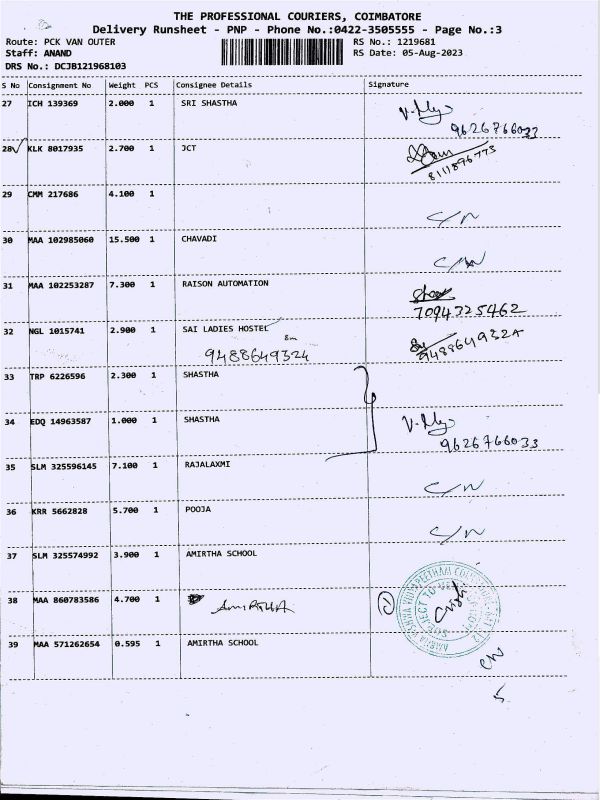 THE PROFESSIONAL COURIERS, COIMBATORE
Delivery Runsheet - PNP - Phone No.:0422-3505555 - Page No.:3
Route: PCK VAN OUTER RS No.: 1219681
Staff: ANAND RS Date: 05-Aug-2023
DRS No.: DCJB121968103
S No Consignment No Weight PCS Consignee Details Signature
27 ICH 139369 2.000 1 SRI SHASTHA
9626766033
28 KLK 8017935 2.700 1 JCT
8111896773
29 CMM 217686 4.100 1
C/N
30 MAA 102985060 15.500 1 CHAVADI
C/N
31 MAA 102253287 7.300 1 RAISON AUTOMATION
7094325462
32 NGL 1015741 2.900 1 SAI LADIES HOSTEL
9488649324 9488649324
33 TRP 6226596 2.300 1 SHASTHA
34 EDQ 14963587 1.000 1 SHASTHA
9626766033
35 SLM 325596145 7.100 1 RAJALAXMI
C/N
36 KRR 5662828 5.700 1 POOJA
C/N
37 SLM 325574992 3.900 1 AMIRTHA SCHOOL
38 MAA 860783586 4.700 1 AMIRTHA
39 MAA 571262654 0.595 1 AMIRTHA SCHOOL
C/N
5